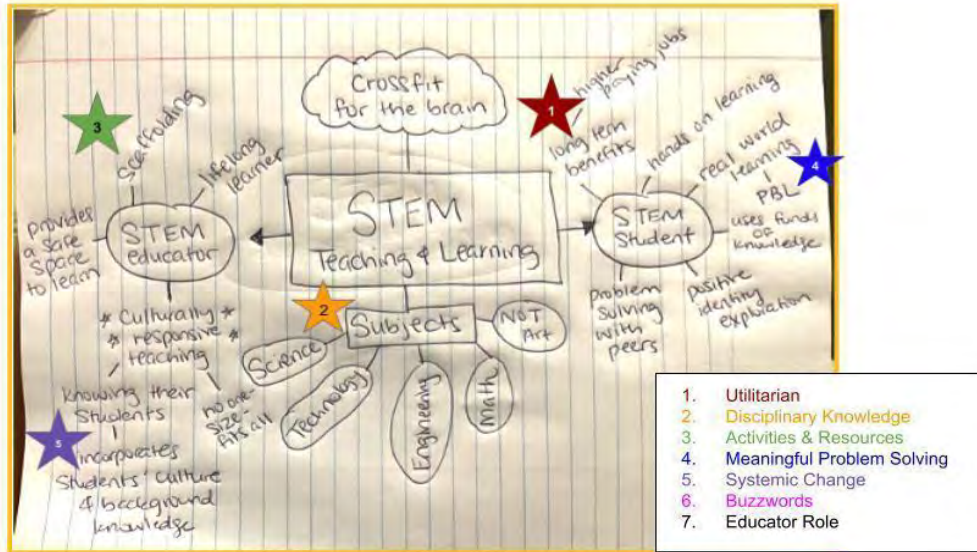 Crossfit
for the brain
1
higher
paying jobs
long term
benefits
hands on learning
real world
learning
4
PBL
uses funds
of
knowledge
positive
identity
exploration
problem
solving
with
peers
STEM
Student
STEM
Teaching & Learning
3
Scaffolding
lifelong
learner
provides
a safe
space
to learn
STEM
educator
* Culturally *
* responsive *
teaching
knowing their
Students
no one-
size-
fits all
5
incorporates
Students' culture
& background
knowledge
2
Subjects
NOT
Art
Science
Technology
Engineering
Math
1. Utilitarian
2. Disciplinary Knowledge
3. Activities & Resources
4. Meaningful Problem Solving
5. Systemic Change
6. Buzzwords
7. Educator Role